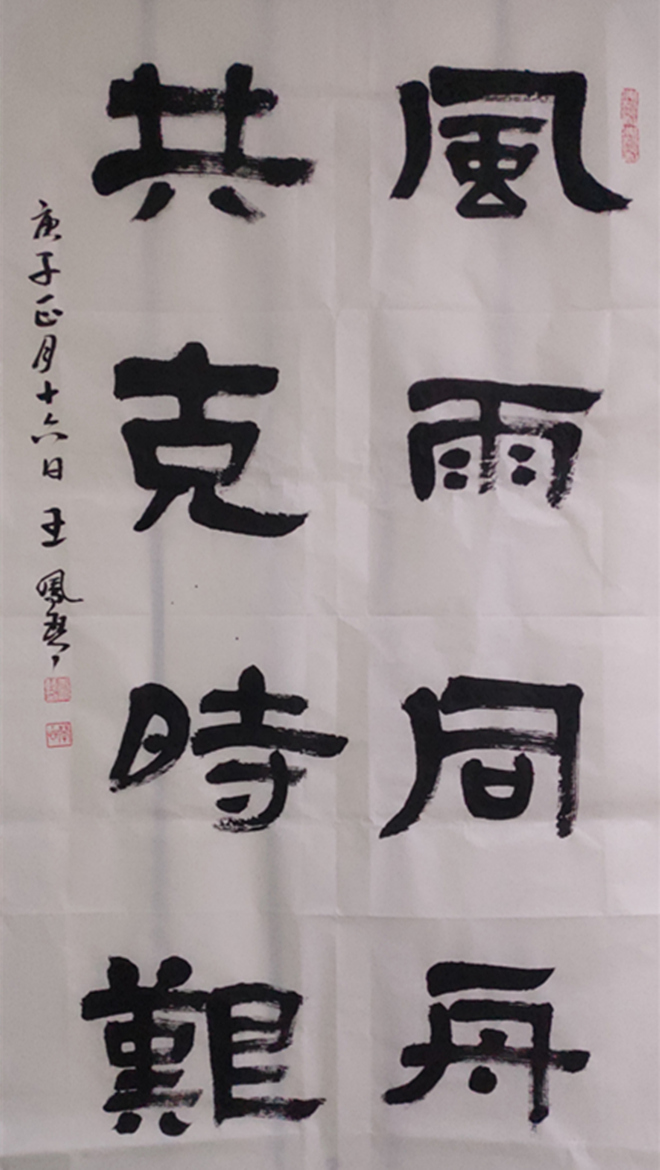 風雨同舟
共克時艱
庚子正月十六日王鳳